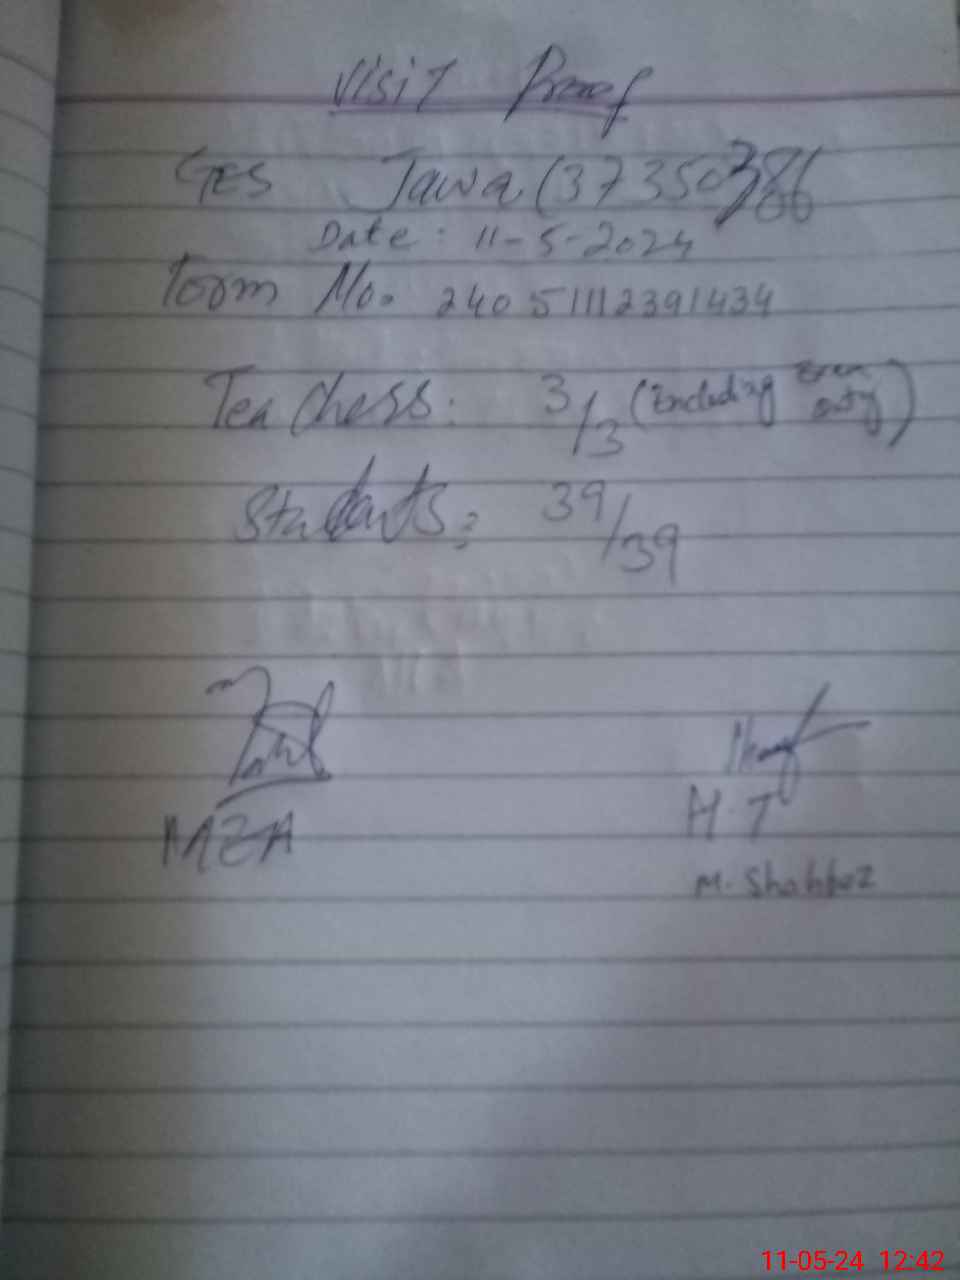 Visit Proof
GES Jawa (37350386
Date: 11-5-2024
Form No. 240511112391434
Teachers: 3/3 (Including Exam duty)
Students: 39/39
MEA
H.T
M. Shahbaz
11-05-24 12:42